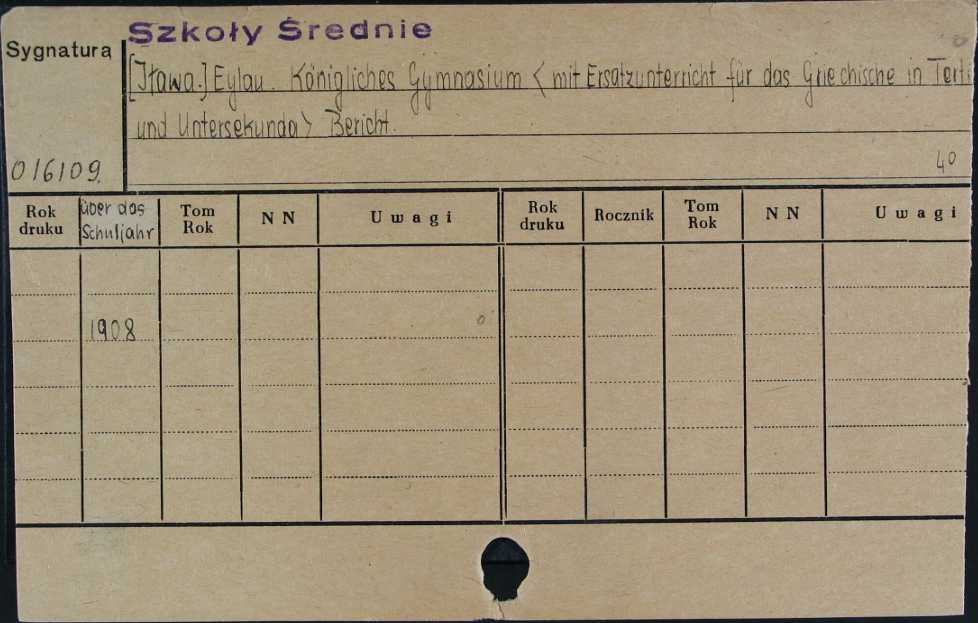 Szkoły Średnie
Sygnatura
[Iława.] Eylau. Königliches Gymnasium < mit Ersatzunterricht für das Griechische in Terti
und Untersekunda > Bericht.
016109.
4°
Rok druku
über das Schuljahr
Tom Rok
N N
Uwagi
Rok druku
Rocznik
Tom Rok
N N
Uwagi
1908